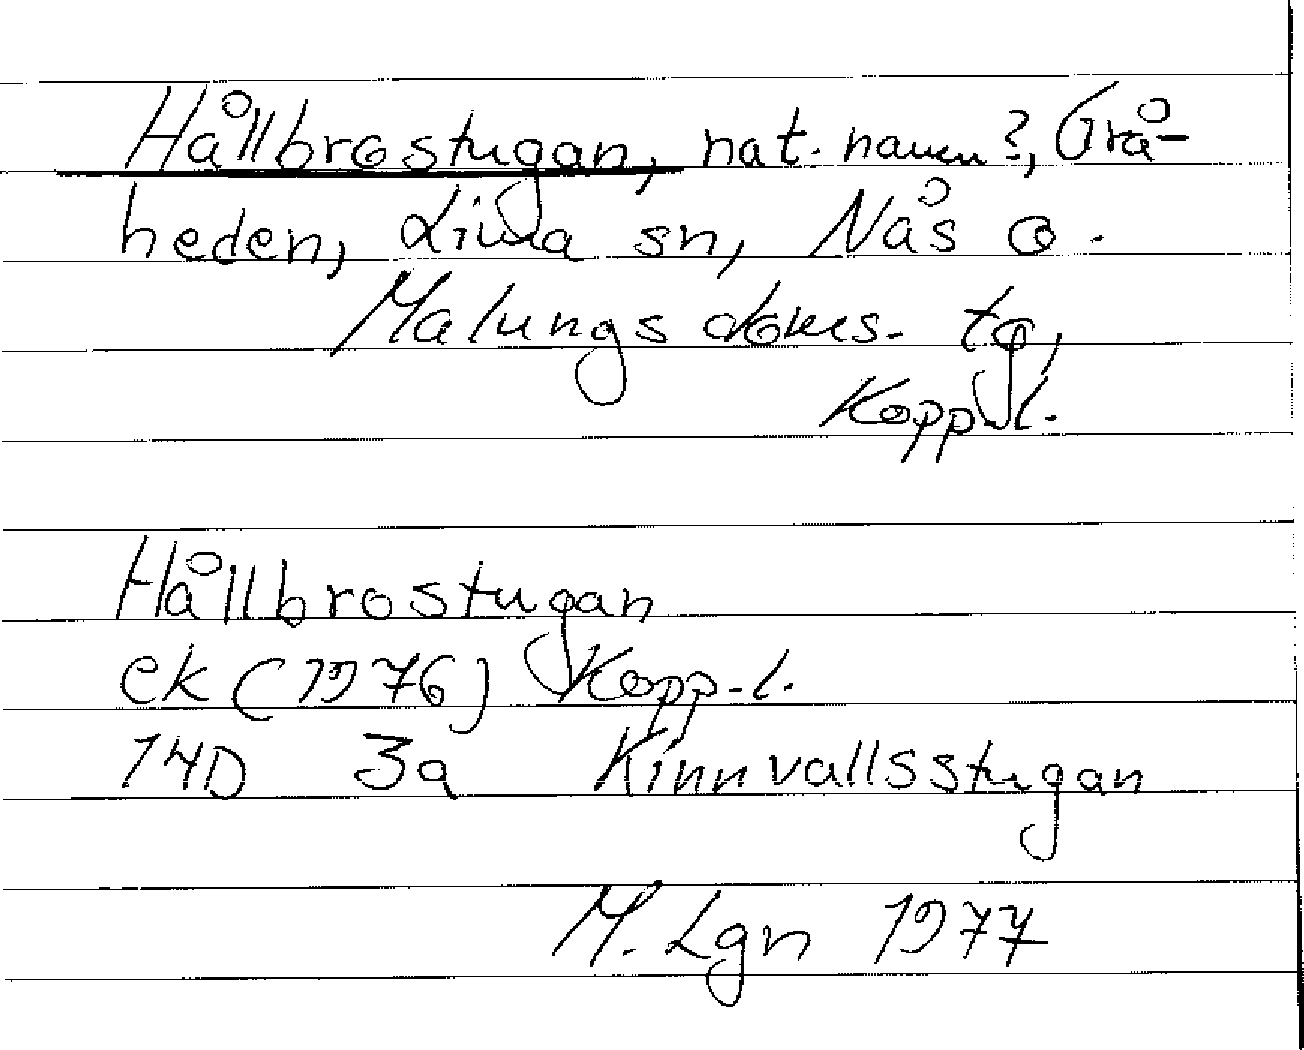 Hållbrostugan, nat. namn?, Grå-
heden, Lima sn, Nås o.
Malungs doms. tg,
Kopp. l.
Hållbrostugan
ek (1976) Kopp. l.
14D 3a Kinnvallsstugan
M. Lgn 1977